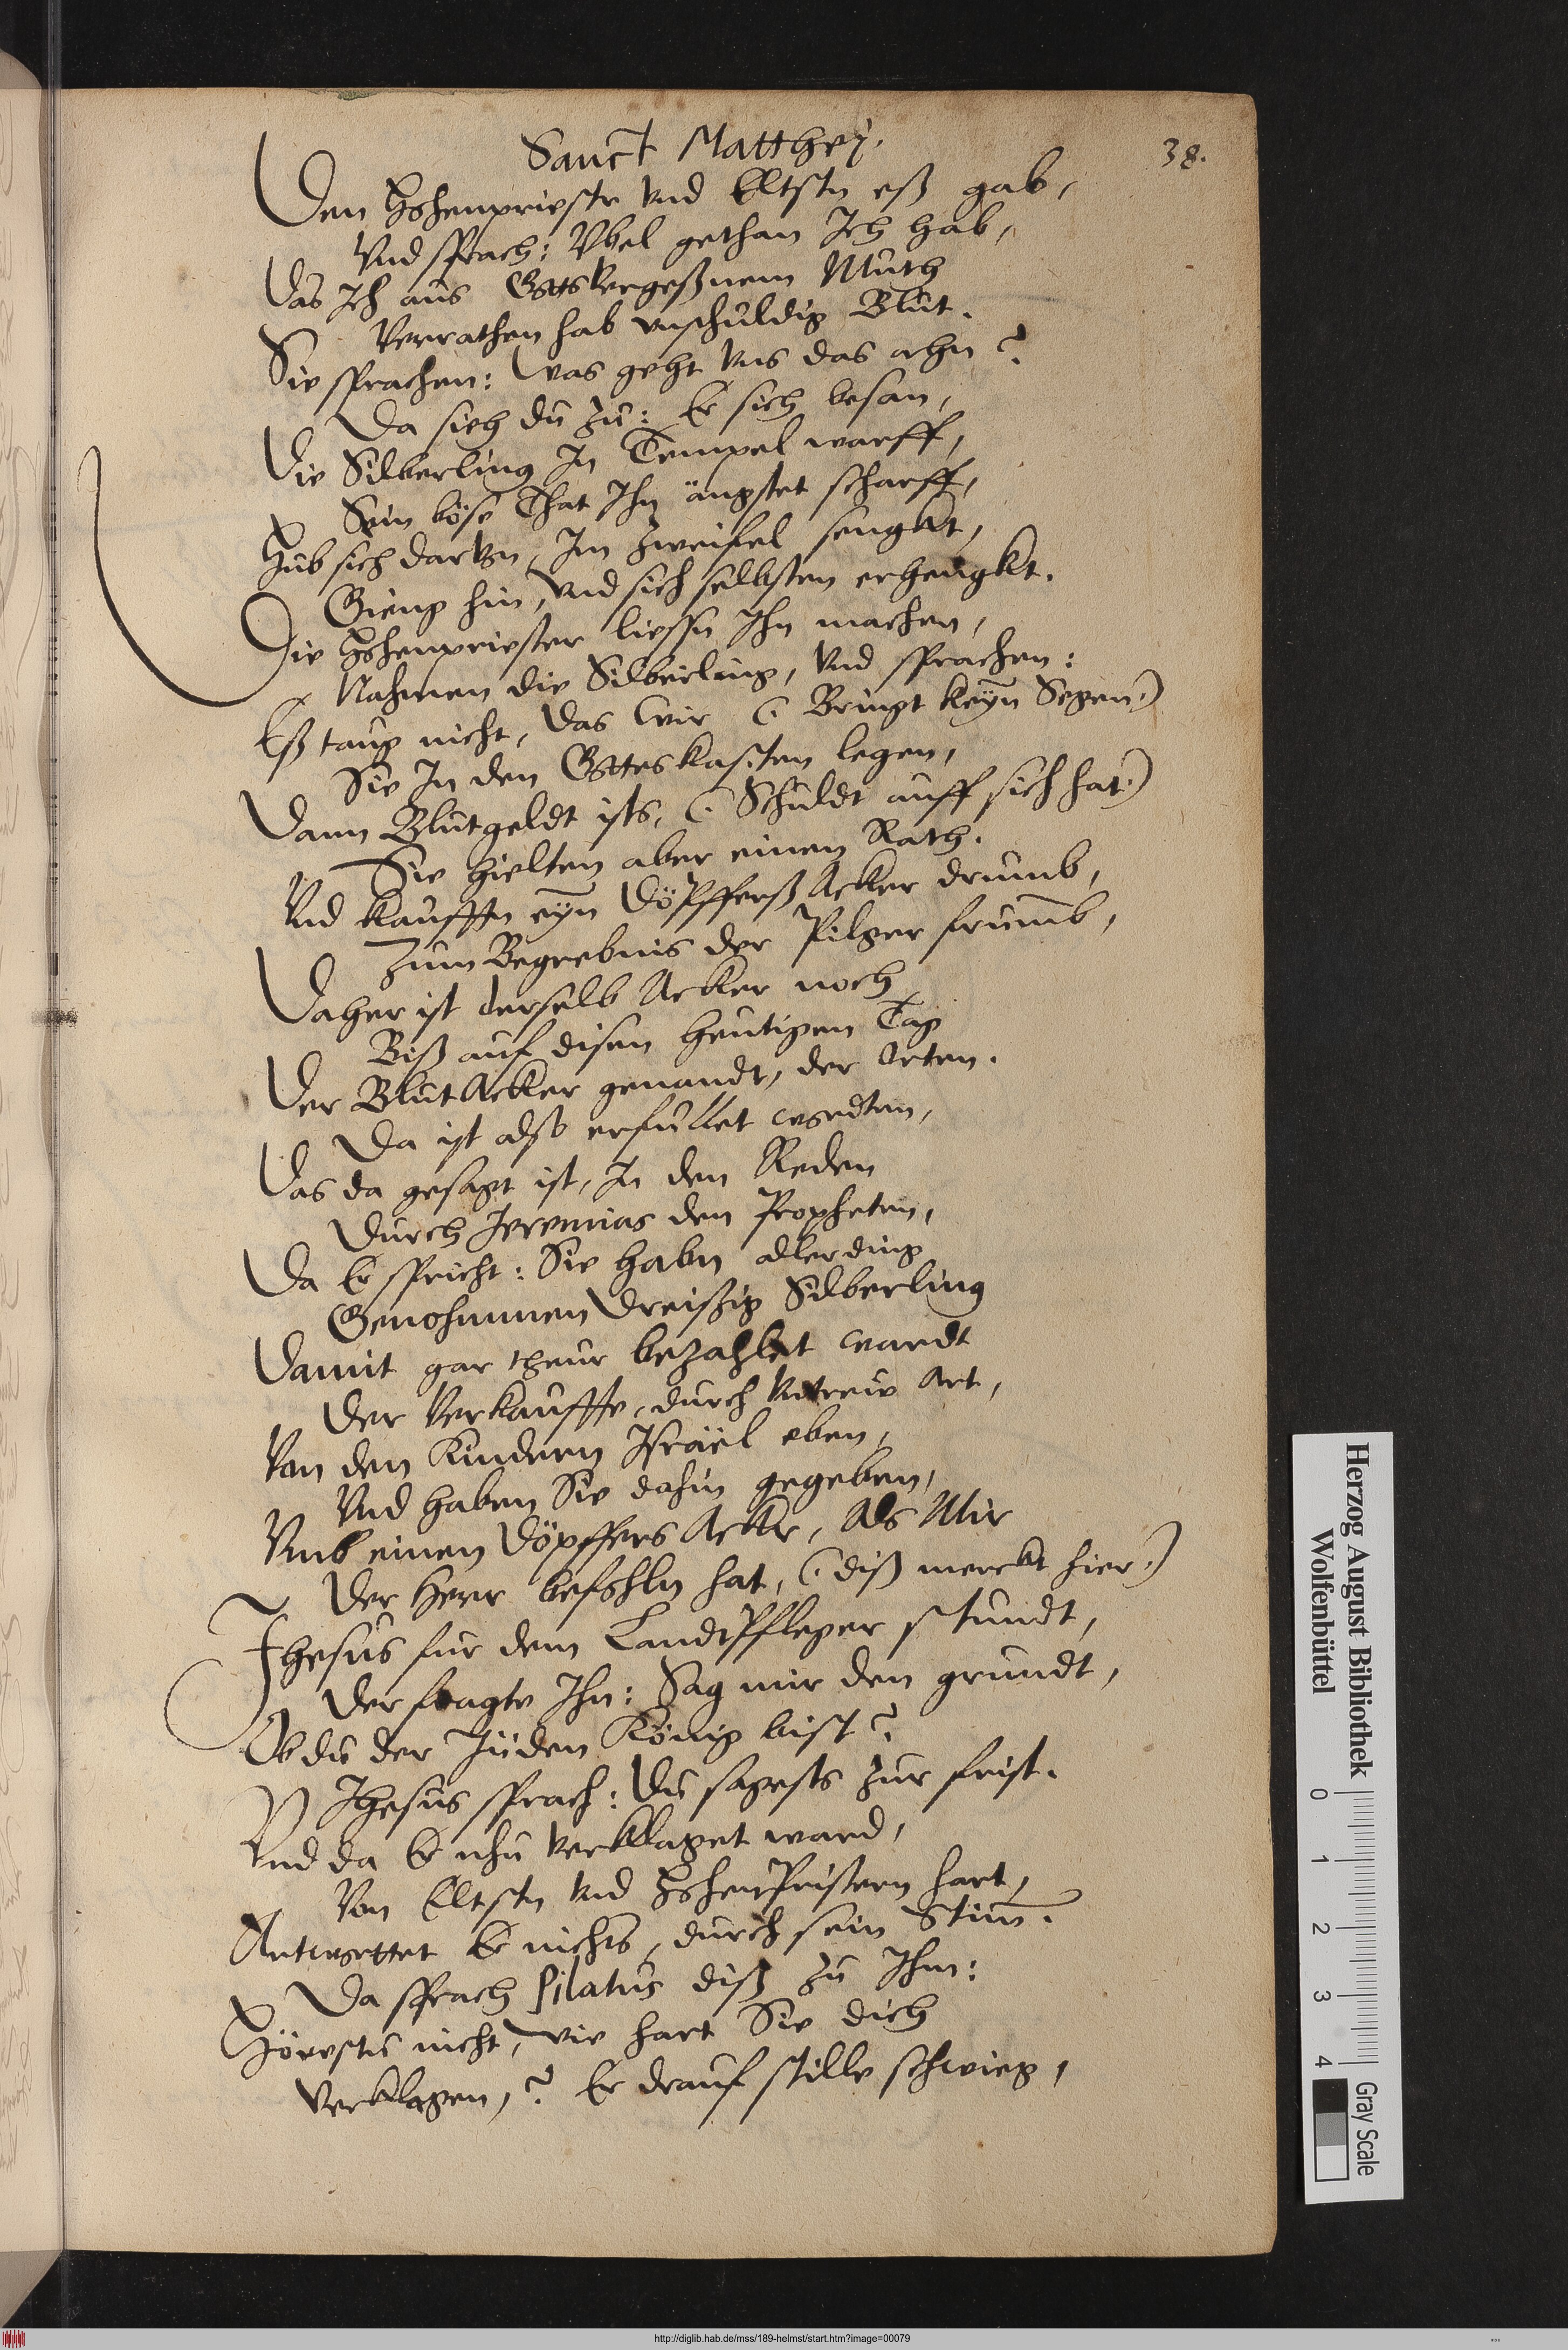 Sanct Matthej.
38.
Den Hohenpriestr vnd Eltstn eß gab,
Vnd sprach: Vbel gethan Ich hab,
Das Ich aus Gotts Vergeßnem Muth
Verrathen hab vnschuldig Blut.
Sie sprachen: Was geht vns das ahn?
Da sieh du zu: Er sich besan,
Die Silberling In Tempel warff,
Sein böse That Ihn ängstet scharff,
Hub sich darvon, Im Zweifel sengkt,
Gieng hin, vnd sich selbsten erhengkt.
Die Hohenpriester liessn Ihn machen,
Nahmen die Silberling, Vnd sprachen:
Eß taug nicht, das Wir (: Bringt keyn Segen:)
Sie In den Gotteskasten legen,
Dann Blutgeldt ists, (: Schuldt auff sich hat:)
Sie hielten aber einen Rath.
Vnd kaufftn eyn Döpfferß Acker drumb,
Zum Begrebnis der Pilger frumb,
Daher ist derselb Acker noch
Biß auf disen heutigen Tag
Der BlutAcker genandt, der Orten.
Da ist also erfüllet wordten,
Das da gesagt ist, In den Reden
Durch Jeremias den Propheten,
Da Er spricht: Sie habn allerding
Genohmmen Dreissig Silberling
Damit gar theur bezahlet wardt
Der Verkauffte, durch Vntreue Art,
Von den Kindern Israël eben,
Vnd haben Sie dahin gegeben,
Vmb einen Döpffers Ackr, Als Mir
Der Herr befohln hat, (: diß merckt hier:)
Jhesus fur dem LandtPfleger stundt,
Der fragte Ihn: Sag mir den grundt,
Ob du der Jüden König bist?
Jhesus sprach: Du sagests zur frist.
Vnd da Er nhu verklaget ward,
Von Eltstn vnd HohenPristern hart,
Antworttet Er nichts, durch sein Stim.
Da sprach Pilatus diß zu Ihm:
Hörestu nicht, wie hart Sie dich
Verklagen,? Er drauf stille schwieg,
Herzog August Bibliothek
Wolfenbüttel
0 1 2 3 4
Gray Scale
http://diglib.hab.de/mss/189-helmst/start.htm?image=00079